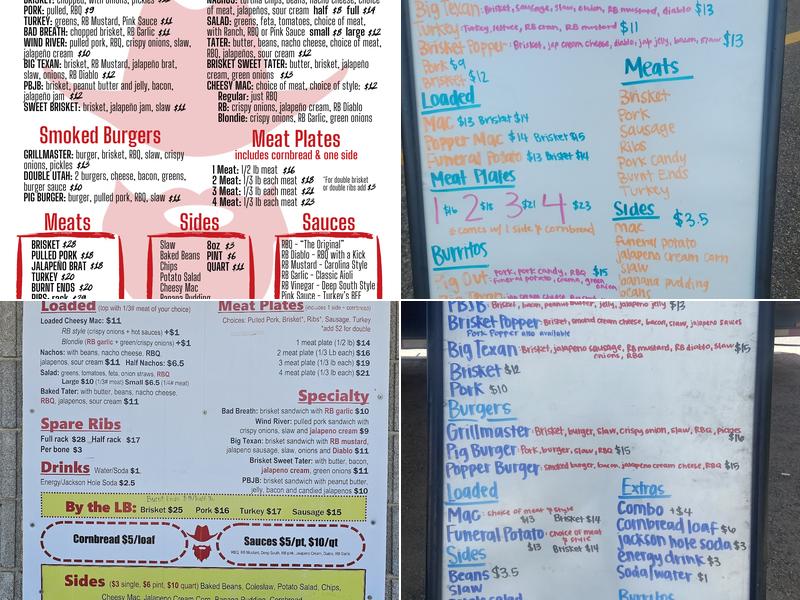 BRISKET: chopped, with onions, pickles
PORK: pulled, RBQ $9
TURKEY: greens, RB Mustard, Pink Sauce $11
BAD BREATH: chopped brisket, RB Garlic $11
WIND RIVER: pulled pork, RBQ, crispy onions, slaw,
jalapeño cream $10
BIG TEXAN: brisket, RB Mustard, jalapeño brat,
slaw, onions, RB Diablo $12
PBJB: brisket, peanut butter and jelly, bacon,
jalapeño jam $12
SWEET BRISKET: brisket, jalapeño jam, slaw $11
NACHOS: tortilla chips, beans, nacho cheese, choice
of meat, jalapeños, sour cream half $8 full $14
SALAD: greens, feta, tomatoes, choice of meat,
with Ranch, RBQ or Pink Sauce small $8 large $12
TATER: butter, beans, nacho cheese, choice of meat,
RBQ, jalapeños, sour cream $12
BRISKET SWEET TATER: butter, brisket, jalapeño
cream, green onions $13
CHEESY MAC: choice of meat, choice of style: $12
Regular: just RBQ
RB: crispy onions, jalapeño cream, RB Diablo
Blondie: crispy onions, RB Garlic, green onions
Smoked Burgers
GRILLMASTER: burger, brisket, RBQ, slaw, crispy
onions, pickles $15
DOUBLE UTAH: 2 burgers, cheese, bacon, greens,
burger sauce $10
PIG BURGER: burger, pulled pork, RBQ, slaw $11
Meat Plates
includes cornbread & one side
1 Meat: 1/2 lb meat $16
2 Meat: 1/3 lb each meat $18
3 Meat: 1/3 lb each meat $21
4 Meat: 1/3 lb each meat $23
*For double brisket
or double ribs add $3
Meats
BRISKET $28
PULLED PORK $18
JALAPEÑO BRAT $18
TURKEY $20
BURNT ENDS $20
Sides
Slaw
Baked Beans
Chips
Potato Salad
Cheesy Mac
Banana Pudding
8oz $3
PINT $6
QUART $11
Sauces
RBQ - "The Original"
RB Diablo - RBQ with a Kick
RB Mustard - Carolina Style
RB Garlic - Classic Aioli
RB Vinegar - Deep South Style
Pink Sauce - Turkey's BFF
Big Texan: Brisket, sausage, slaw, onion, RB mustard, diablo $13
Turkey: Turkey, lettuce, RB cran, RB mustard $11
Brisket Popper: Brisket, jap cream cheese, diablo, jap jelly, bacon, slaw $13
Pork $9
Brisket $12
Loaded
Mac $13 Brisket $14
Popper Mac $14 Brisket $15
Funeral Potato $13 Brisket $14
Meat Plates
1 $16 2 $18 3 $21 4 $23
comes w/ 1 side & cornbread
Burritos
Pig Out: Pork, pork candy, RBQ $15
funeral potato, creama, green onion
Meats
Brisket
Pork
Sausage
Ribs
Pork Candy
Burnt Ends
Turkey
Sides $3.5
mac
funeral potato
jalapeno cream corn
slaw
banana pudding
beans
Loaded (top with 1/3# meat of your choice)
Loaded Cheesy Mac: $11
RB style (crispy onions + hot sauces) +$1
Blondie (RB garlic + green/crispy onions) +$1
Nachos: with beans, nacho cheese, RBQ,
jalapenos, sour cream $11 Half Nachos: $6.5
Salad: greens, tomatoes, feta, onion straws, RBQ
Large $10 (1/3# meat) Small $6.5 (1/4# meat)
Baked Tater: with butter, beans, nacho cheese,
RBQ, jalapenos, sour cream $11
Spare Ribs
Full rack $28 Half rack $17
Per bone $3
Drinks Water/Soda $1
Energy/Jackson Hole Soda $2.5
Meat Plates (includes 1 side + cornbread)
Choices: Pulled Pork, Brisket*, Ribs*, Sausage, Turkey
*add $2 for double
1 meat plate (1/2 lb) $14
2 meat plate (1/3 lb each) $16
3 meat plate (1/3 lb each) $19
4 meat plate (1/3 lb each) $21
Specialty
Bad Breath: brisket sandwich with RB garlic $10
Wind River: pulled pork sandwich with
crispy onions, slaw and jalapeno cream $9
Big Texan: brisket sandwich with RB mustard,
jalapeno sausage, slaw, onions and Diablo $11
Brisket Sweet Tater: with butter, bacon,
jalapeno cream, green onions $11
PBJB: brisket sandwich with peanut butter,
jelly, bacon and candied jalapenos $10
By the LB: Brisket $25 Pork $16 Turkey $17 Sausage $15
Cornbread $5/loaf
Sauces $5/pt, $10/qt
Sides ($3 single, $6 pint, $10 quart) Baked Beans, Coleslaw, Potato Salad, Chips,
Cheesy Mac, Jalapeno Cream Corn, Banana Pudding, Cornbread
PBJB: Brisket, bacon, jelly, jalapeno jelly $13
Brisket Popper: Brisket, smoked cream cheese, bacon, slaw, jalapeno sauces
Pork Popper also available
Big Texan: Brisket, jalapeno sausage, RB mustard, RB diablo, slaw $15
onions, RBQ
Brisket $12
Pork $10
Burgers
Grillmaster: Brisket, burger, slaw, crispy onion, slaw, RBQ, pickles $16
Pig Burger: Pork, burger, slaw, RBQ $15
Popper Burger: smoked burger, bacon, jalapeno cream cheese, RBQ $15
Loaded
Mac: choice of meat & style
$13 Brisket $14
Funeral Potato: choice of meat
& style
$13 Brisket $14
Sides
Beans $3.5
slaw
Extras
Combo +$4
cornbread loaf $6
jackson hole soda $3
energy drink $3
Soda/water $1